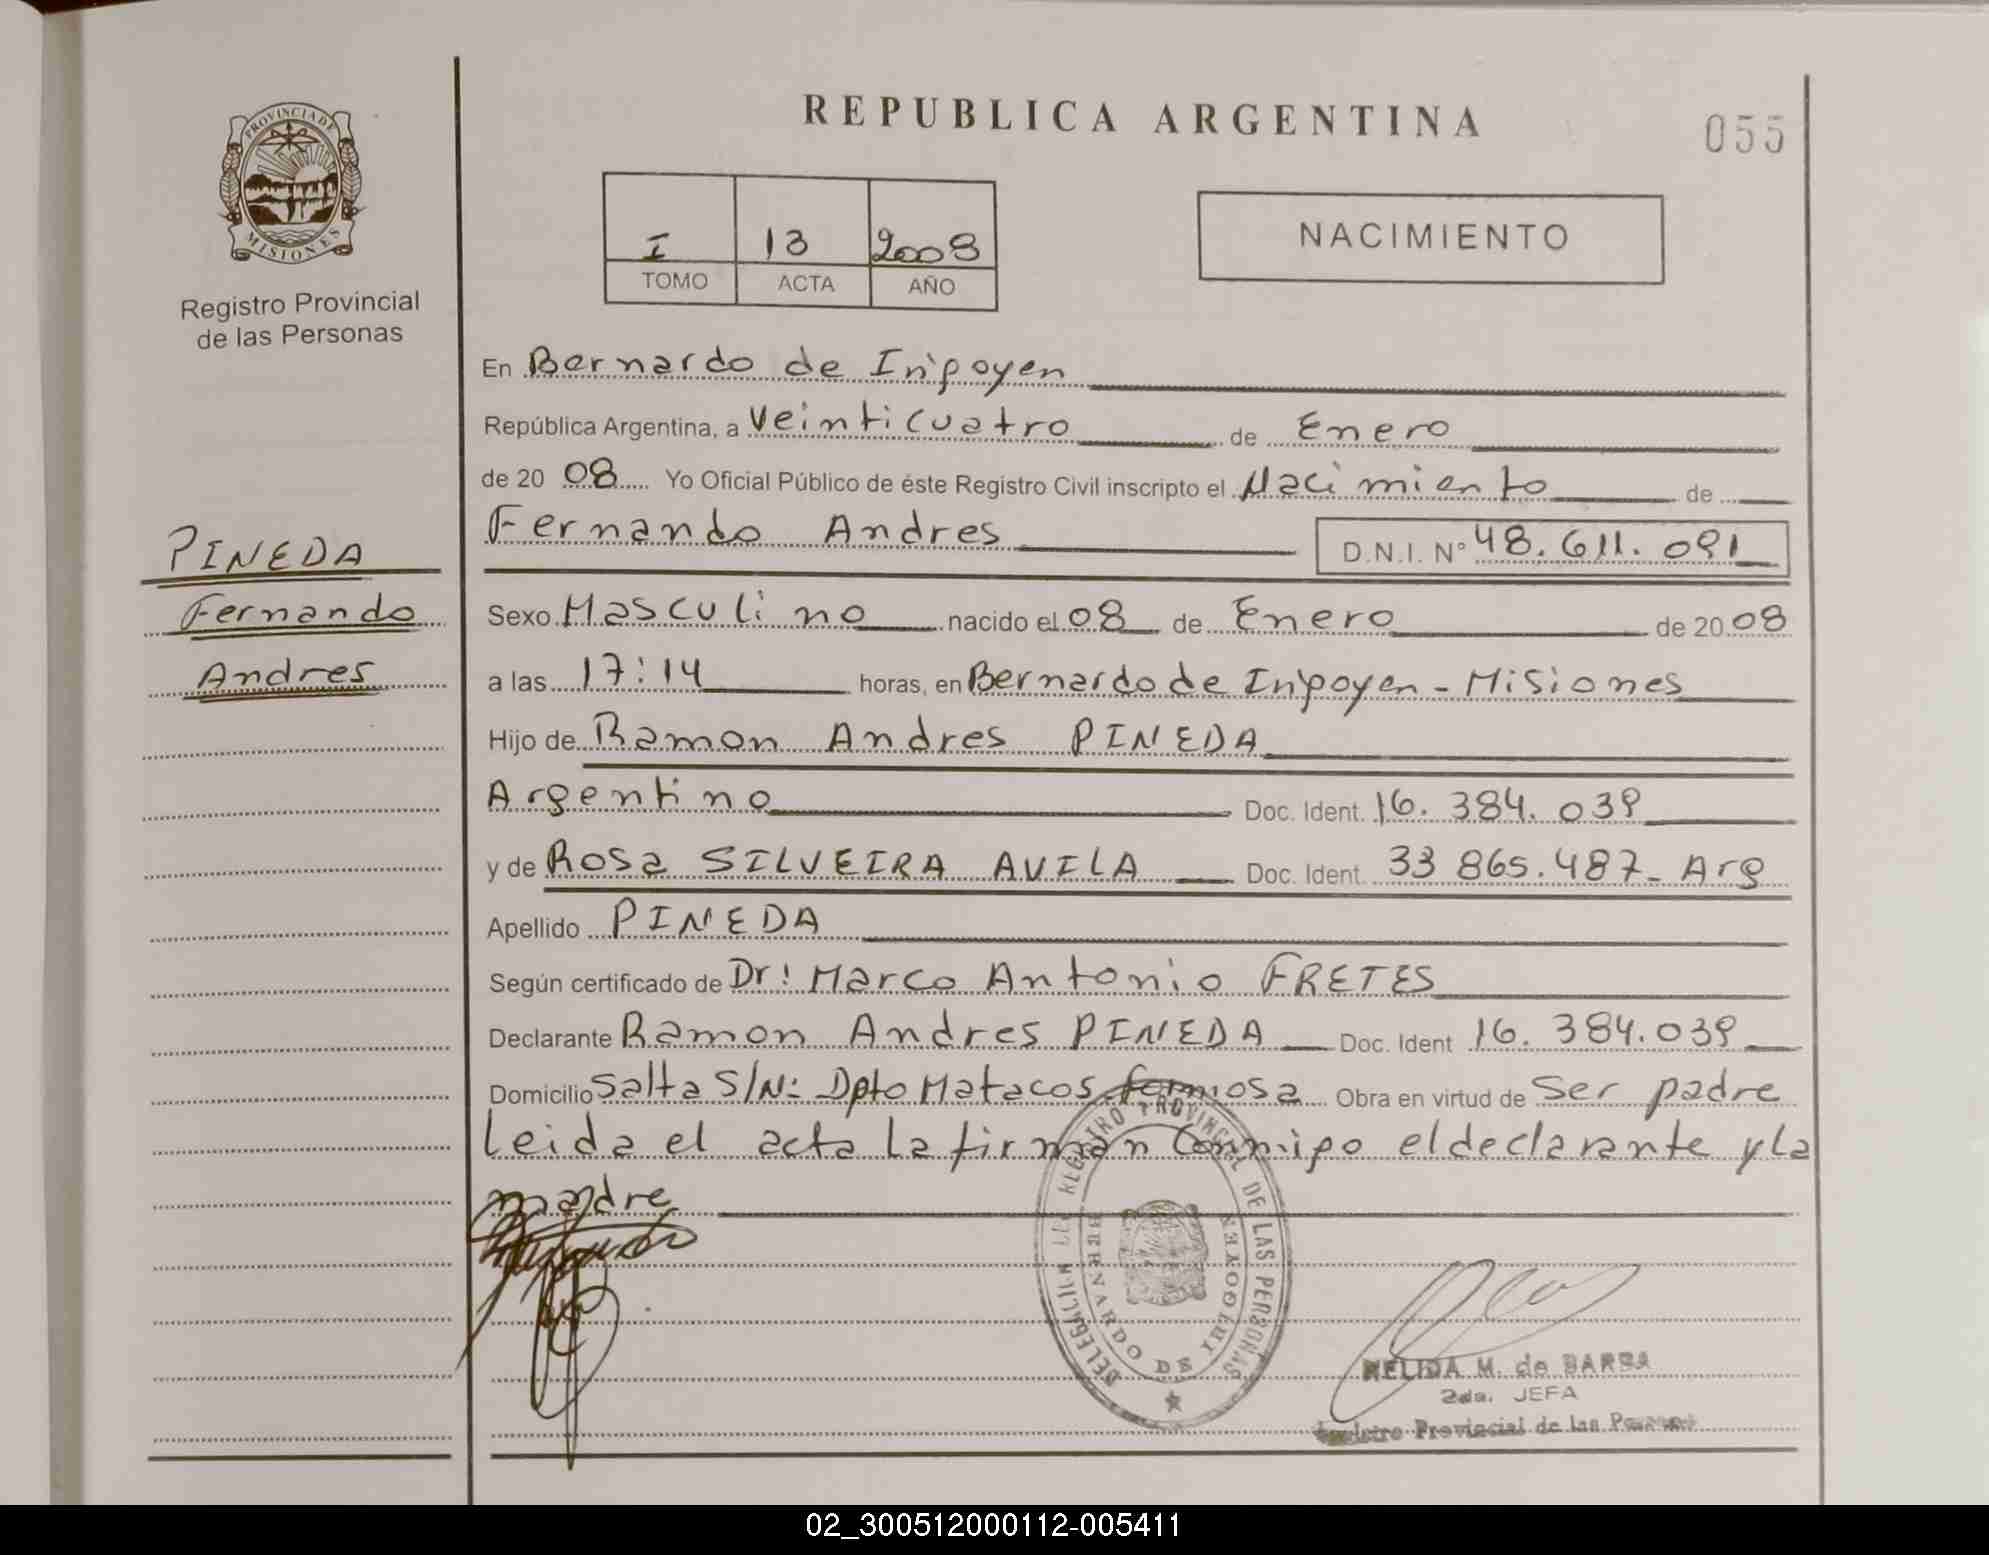 REPUBLICA ARGENTINA
055
PROVINCIA DE
MISIONES
Registro Provincial
de las Personas
I 13 2008
TOMO ACTA AÑO
NACIMIENTO
En Bernardo de Irigoyen
República Argentina, a Veinticuatro de Enero
de 2008 Yo Oficial Público de éste Registro Civil inscripto el Nacimiento de
Fernando Andres D.N.I. Nº 48.611.091
PINEDA
Fernando
Andres
Sexo Masculino nacido el 08 de Enero de 2008
a las 17:14 horas, en Bernardo de Irigoyen - Misiones
Hijo de Ramon Andres PINEDA
Argentino Doc. Ident. 16.384.039
y de Rosa SILVEIRA AVILA Doc. Ident. 33 865.487- Arg
Apellido PINEDA
Según certificado de Dr: Marco Antonio FRETES
Declarante Ramon Andres PINEDA Doc. Ident 16.384.039
Domicilio Salta S/N: Dpto Matacos formosa Obra en virtud de Ser padre
Leida el acta la firman conmigo el declarante y la
madre
DELEGACION DEL REGISTRO PROVINCIAL DE LAS PERSONAS
BERNARDO DE IRIGOYEN
NELIDA M. de BARRA
2da. JEFA
Registro Provincial de las Personas
02_300512000112-005411